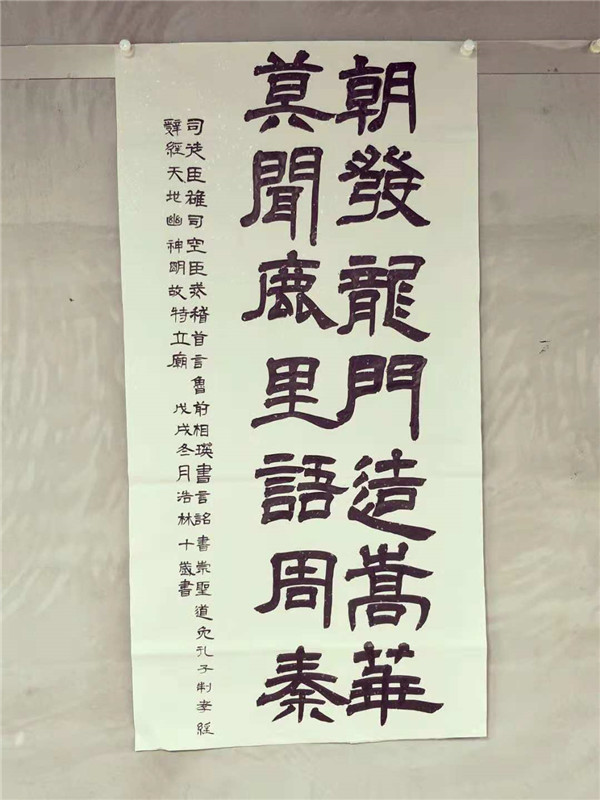 朝發龍門造嵩華
莫聞鹿里語周秦
司徒臣雄司空臣稽首言魯前相瑛書言詔書崇聖道孔子制孝經
辭經天地幽神明故特立廟 戊戌冬月浩林十歲書